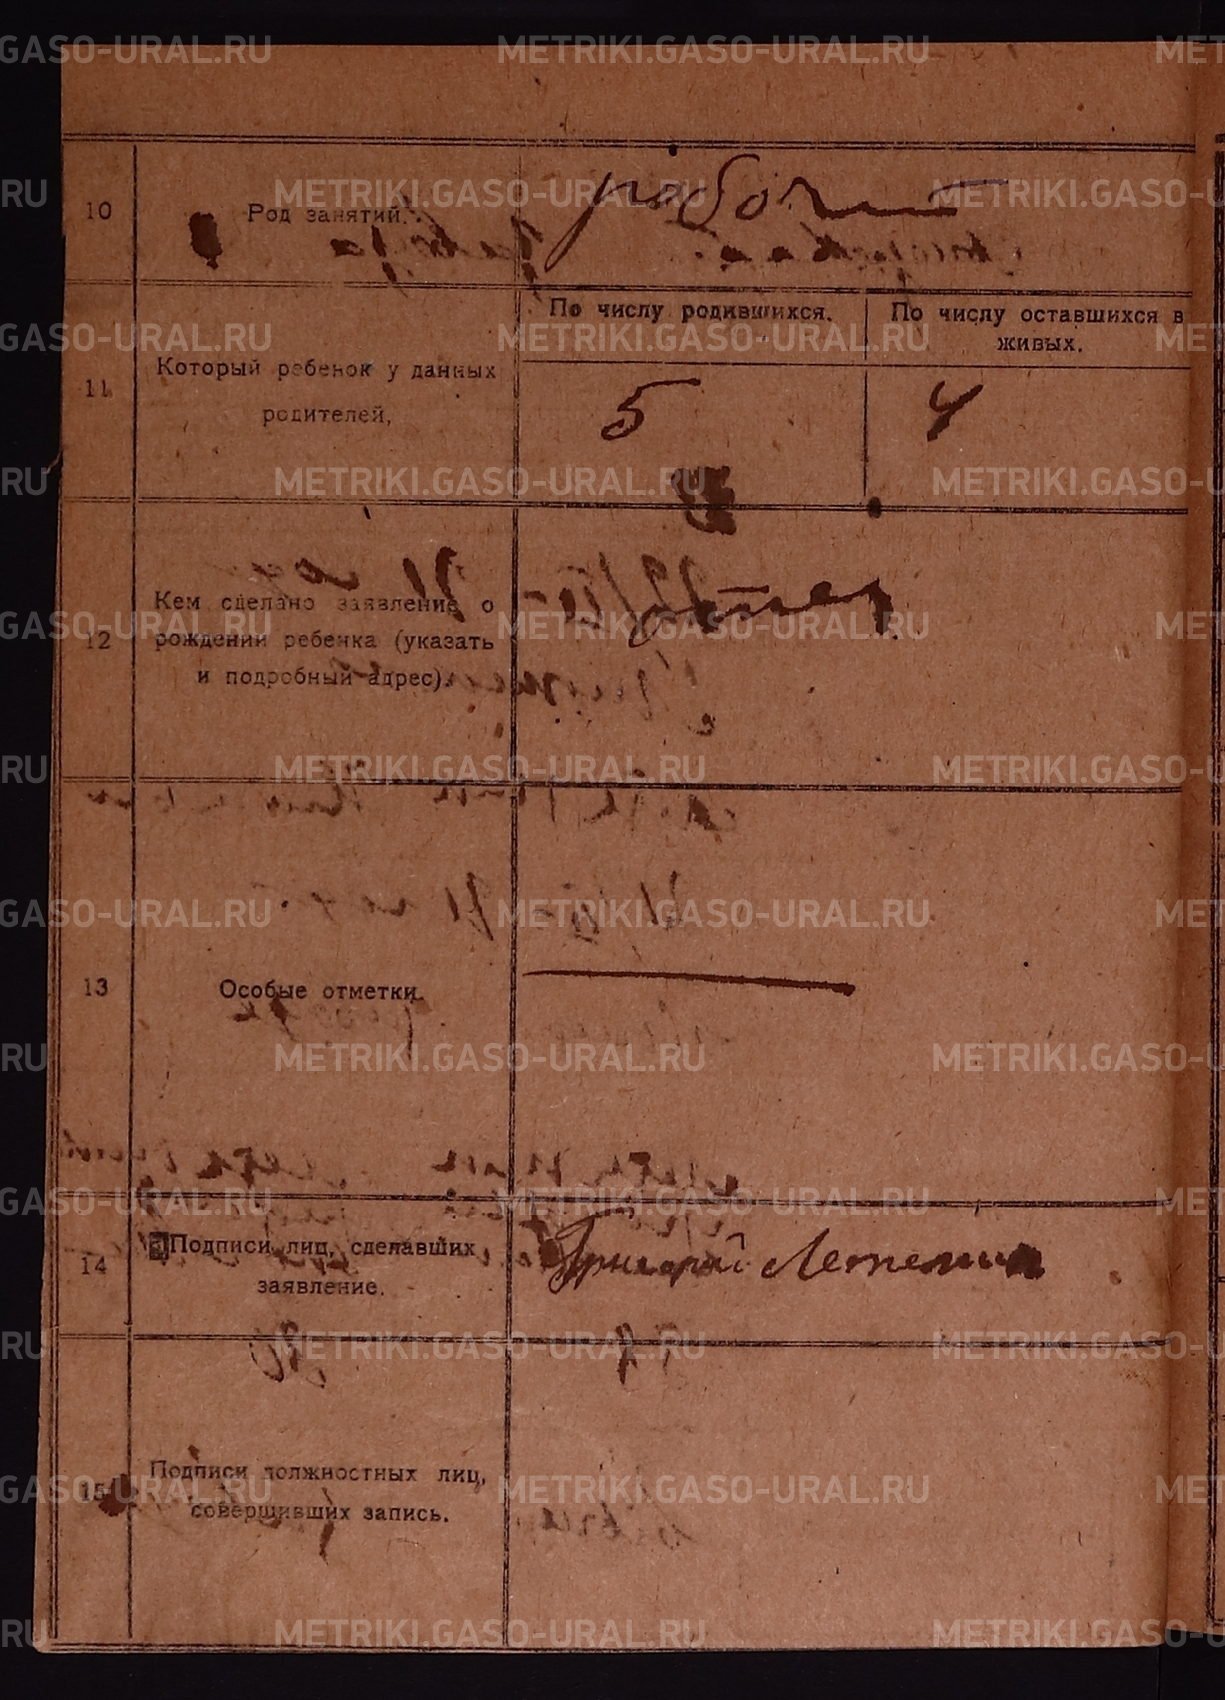 METRIKI.GASO-URAL.RU
10
Род занятий.
11
Который ребенок у данных
родителей.
По числу родившихся.
По числу оставшихся в
живых.
5
4
12
Кем сделано заявление о
рождении ребенка (указать
и подробный адрес).
отец
13
Особые отметки.
14
Подписи лиц, сделавших
заявление.
Григорий
15
Подписи должностных лиц,
совершивших запись.